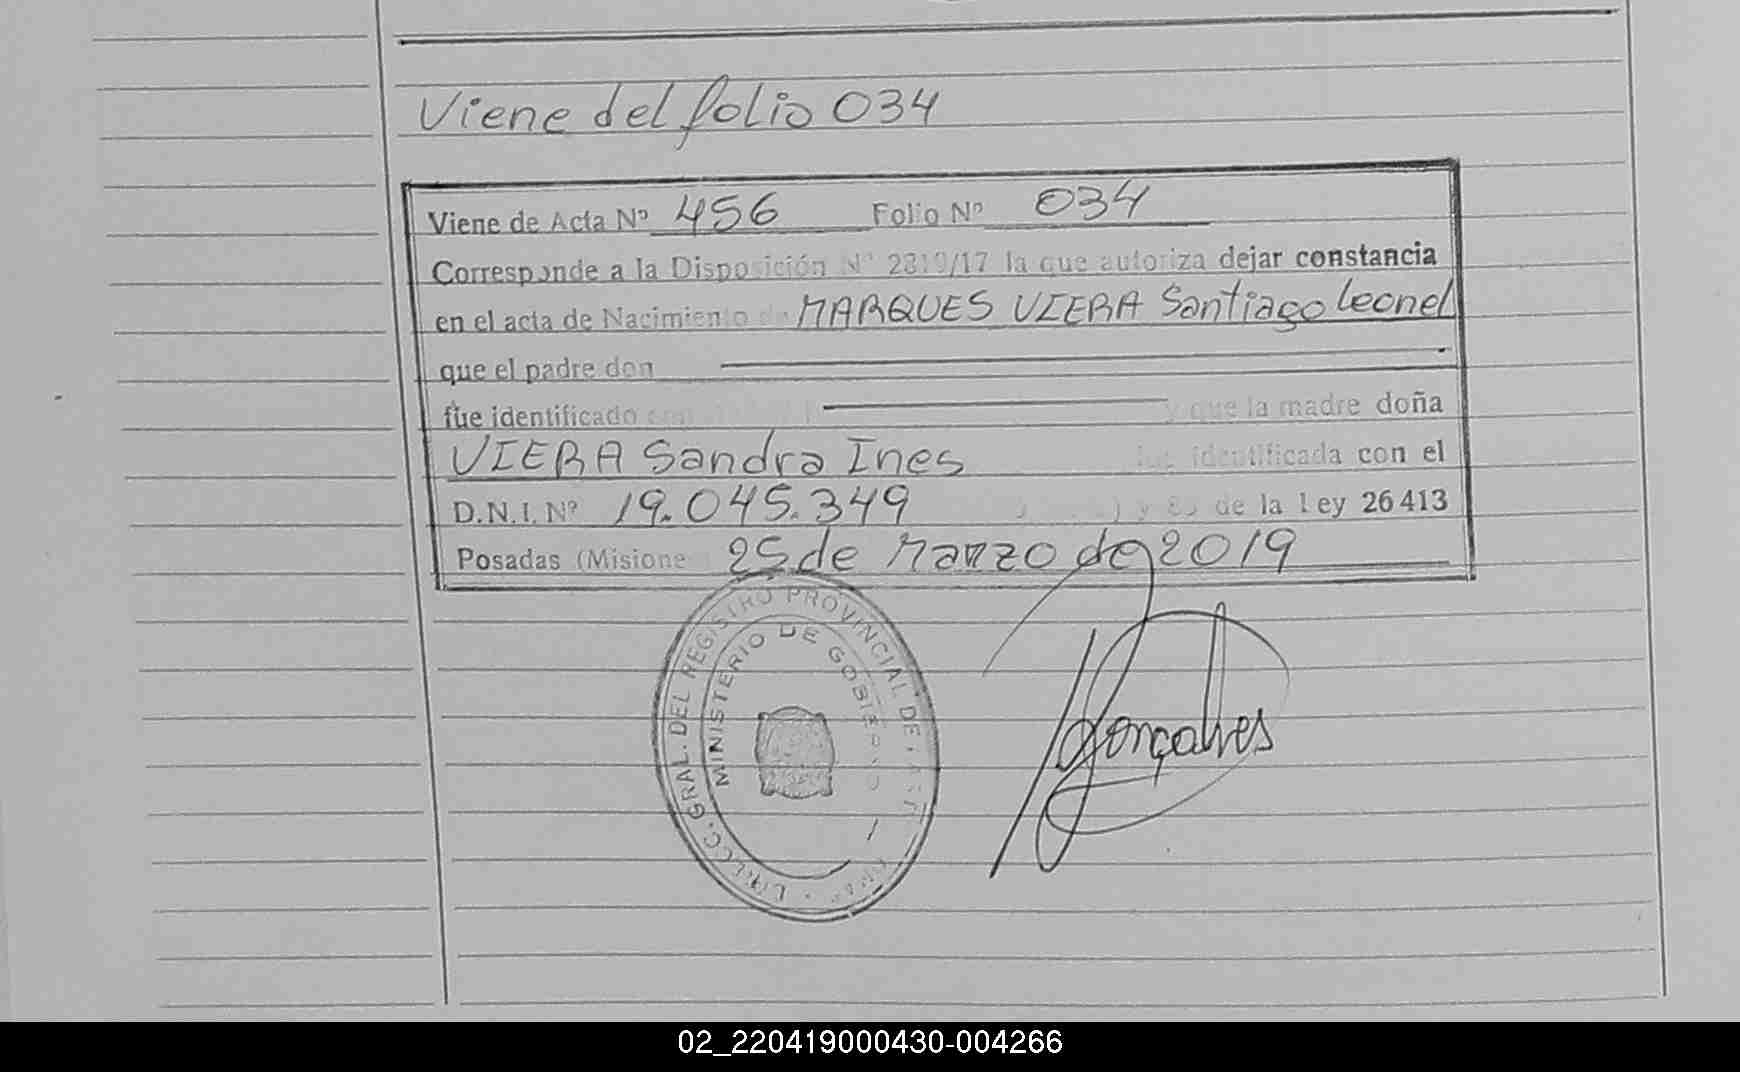 Viene del folio 034
Viene de Acta Nº 456 Folio Nº 034
Corresponde a la Disposición Nº 2819/17 la que autoriza dejar constancia
en el acta de Nacimiento de MARQUES VIERA Santiago Leonel
que el padre don
fue identificado con y que la madre doña
VIERA Sandra Ines fue identificada con el
D.N.I. Nº 19.045.349 y 85 de la Ley 26413
Posadas (Misione 25 de Marzo de 2019
GRAL. DEL REGISTRO PROVINCIAL DE
MINISTERIO DE GOBIERNO
Gonçalves
02_220419000430-004266